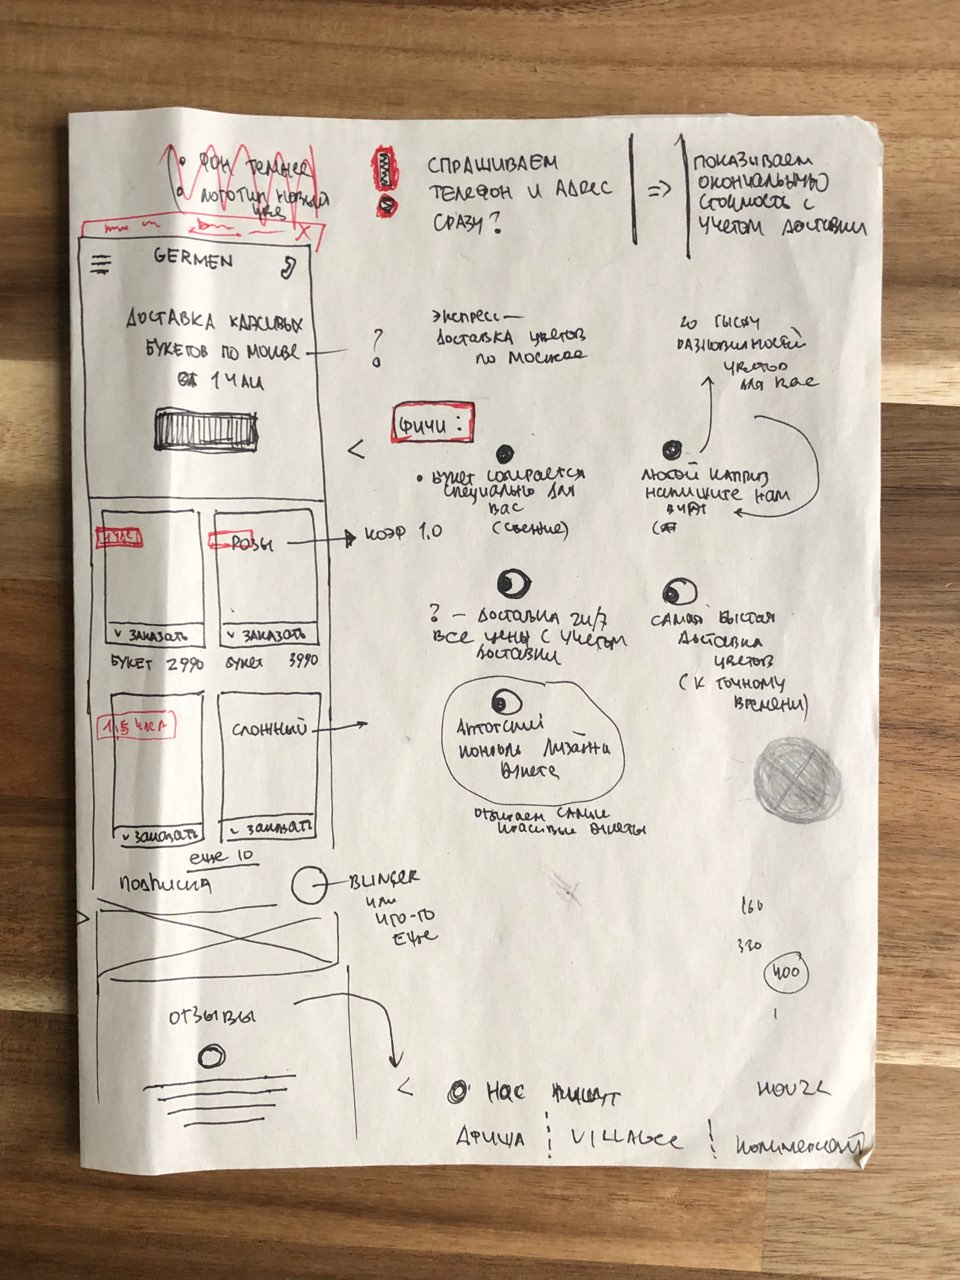 • ФОН ТЕМНЕЕ
ЛОГОТИП НОВЫЙ
GERMEN
ДОСТАВКА КРАСИВЫХ
БУКЕТОВ ПО МОСКВЕ
1 ЧАС
?
1 ЧАС
РОЗЫ
КОЭФ 1.0
˅ ЗАКАЗАТЬ
˅ ЗАКАЗАТЬ
БУКЕТ 2990
БУКЕТ 3990
1,5 ЧАСА
СЛОЖНЫЙ
˅ ЗАКАЗАТЬ
˅ ЗАКАЗАТЬ
ЕЩЕ 10
ПОДПИСКА
BLINGER
ИЛИ
ЧТО-ТО
ЕЩЕ
ОТЗЫВЫ
СПРАШИВАЕМ
ТЕЛЕФОН И АДРЕС
СРАЗУ?
=>
ПОКАЗЫВАЕМ
ОКОНЧАЛЬНУЮ
СТОИМОСТЬ С
УЧЕТОМ ДОСТАВКИ
ЭКСПРЕСС—
ДОСТАВКА ЦВЕТОВ
ПО МОСКВЕ
20 ТЫСЯЧ
РАЗНОВИДНОСТЕЙ
ЦВЕТОВ
ДЛЯ ВАС
<
ФИЧИ:
• БУКЕТ СОБИРАЕТСЯ
СПЕЦИАЛЬНО ДЛЯ
ВАС
(СВЕЖИЕ)
ЛЮБОЙ КАПРИЗ
НАПИШИТЕ НАМ
? — ДОСТАВКА 24/7
ВСЕ ЦЕНЫ С УЧЕТОМ
ДОСТАВКИ
САМАЯ БЫСТАЯ
ДОСТАВКА
ЦВЕТОВ
(К ТОЧНОМУ
ВРЕМЕНИ)
АВТОРСКИЙ
ДИЗАЙН
БУКЕТА
САМЫЕ
КРАСИВЫЕ БУКЕТЫ
160
330
400
<
НАС ПИШУТ
АФИША
VILLAGE
КОММЕРСАНТ